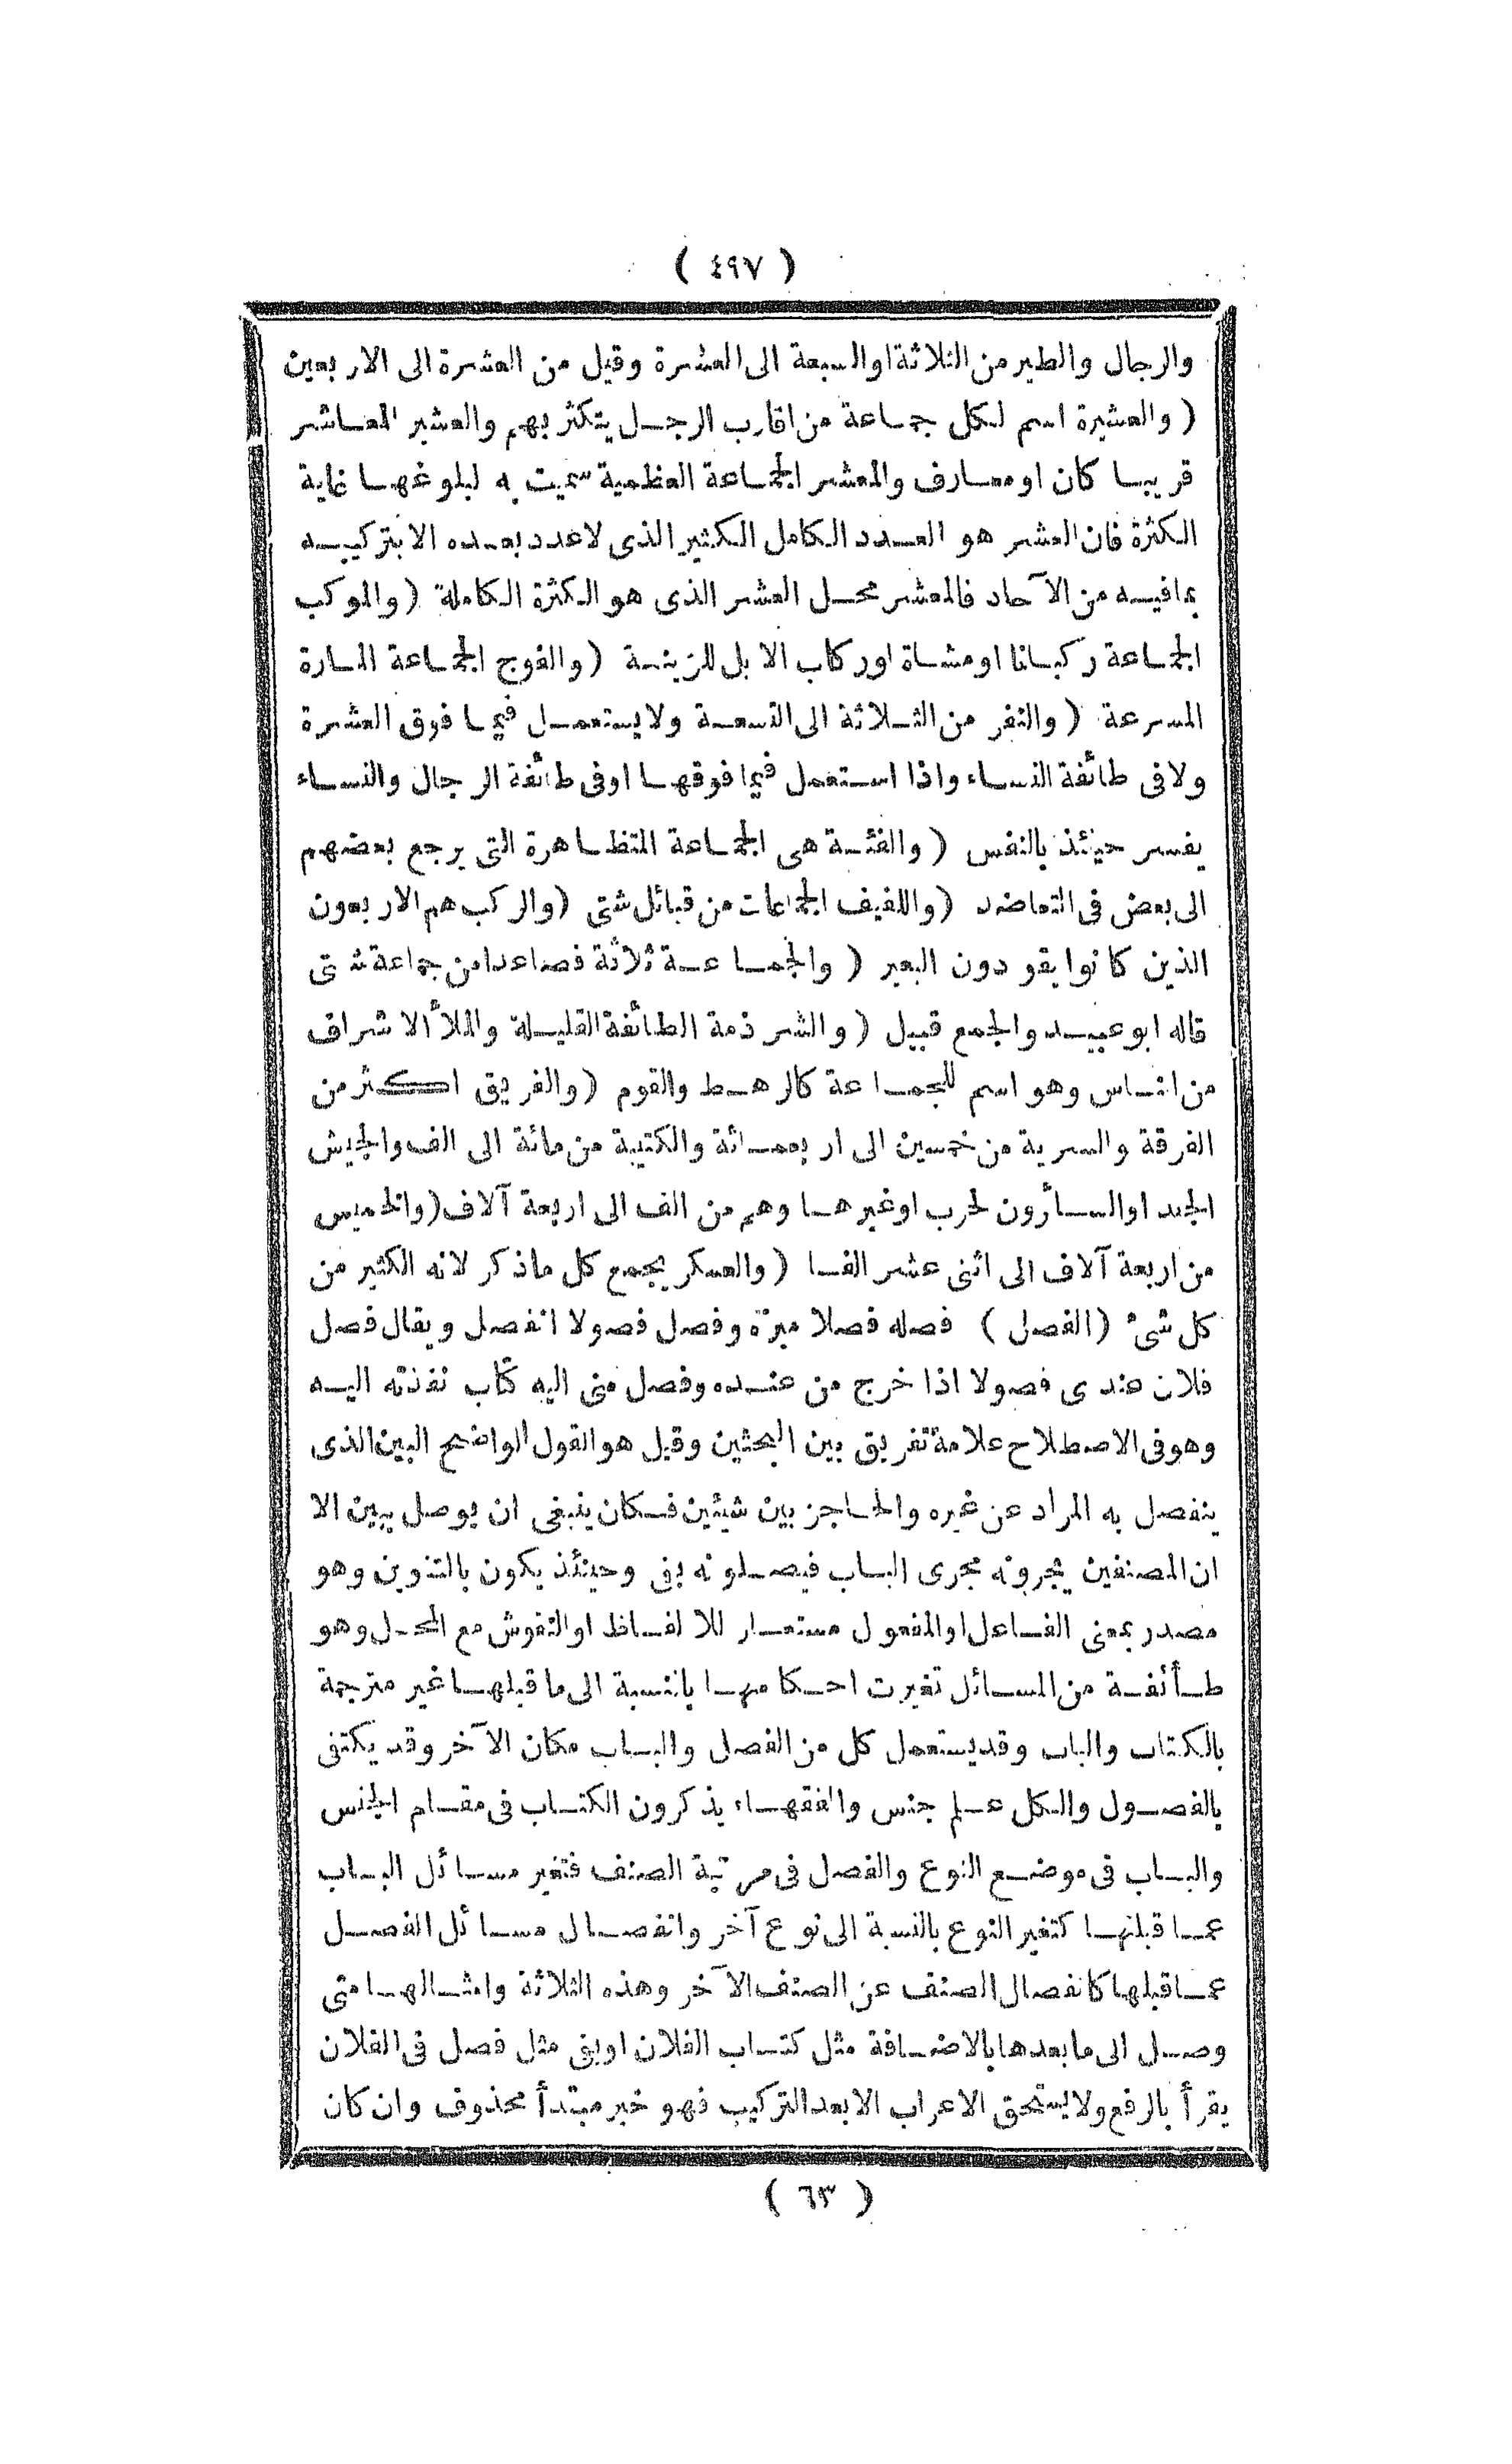 ( ٤٩٧ )
والرجال والطير من الثلاثة او السبعة الى العشرة وقيل من العشرة الى الاربعين
( والعشيرة اسم لكل جماعة من اقارب الرجل يتكثر بهم والعشير المعاشر
قريبا كان او معارف والمعشر الجماعة العظمية سميت به لبلوغها غاية
الكثرة فان العشر هو العدد الكامل الكثير الذى لا عدد بعده الا بتركيبه
بما فيه من الآحاد فالمعشر محل العشر الذى هو الكثرة الكاملة ( والموكب
الجماعة ركبانا او مشاة او ركاب الابل للزينة ( والفوج الجماعة المارة
المسرعة ( والنفر من الثلاثة الى التسعة ولا يستعمل فيما فوق العشرة
ولا فى طائفة النساء واذا استعمل فيما فوقها او فى طائفة الرجال والنساء
يفسر حينئذ بالنفس ( والفئة هى الجماعة المتظاهرة التى يرجع بعضهم
الى بعض فى التعاضد ( واللفيف الجماعات من قبائل شتى ( والركب هم الاربعون
الذين كانوا يقودون البعير ( والجماعة ثلاثة فصاعدا من جماعة شتى
قاله ابو عبيد والجمع قبيل ( والشرذمة الطائفة القليلة والملأ الاشراف
من الناس وهو اسم للجماعة كالرهط والقوم ( والفريق اكثر من
الفرقة والسرية من خمسين الى اربعمائة والكتيبة من مائة الى الف والجيش
الجند او السأرون لحرب او غيرها وهم من الف الى اربعة آلاف ( والخميس
من اربعة آلاف الى اثنى عشر الفا ( والعسكر يجمع كل ما ذكر لانه الكثير من
كل شئ ( الفصل ) فصله فصلا ميزه وفصل فصولا انفصل ويقال فصل
فلان عندى فصولا اذا خرج من عنده وفصل منى اليه كتاب نفذته اليه
وهو فى الاصطلاح علامة تفريق بين البحثين وقيل هو القول الواضح البين الذى
ينفصل به المراد عن غيره والحاجز بين شيئين فكان ينبغى ان يوصل ببين الا
ان المصنفين يجرونه مجرى الباب فيصلونه بفى وحينئذ يكون بالتنوين وهو
مصدر بمعنى الفاعل او المفعول مستعار للالفاظ او النقوش مع المحل وهو
طأئفة من المسائل تغيرت احكامها بالنسبة الى ما قبلها غير مترجمة
بالكتاب والباب وقد يستعمل كل من الفصل والباب مكان الآخر وقد يكتفى
بالفصول والكل علم جنس والفقهاء يذكرون الكتاب فى مقام الجنس
والباب فى موضع النوع والفصل فى مرتبة الصنف فتغير مسائل الباب
عما قبلها كتغير النوع بالنسبة الى نوع آخر وانفصال مسائل الفصل
عما قبلها كانفصال الصنف عن الصنف الآخر وهذه الثلاثة وامثالها متى
وصل الى ما بعدها بالاضافة مثل كتاب الفلان او بفى مثل فصل فى الفلان
يقرأ بالرفع ولا يستحق الاعراب الا بعد التركيب فهو خبر مبتدأ محذوف وان كان
( ٦٣ )